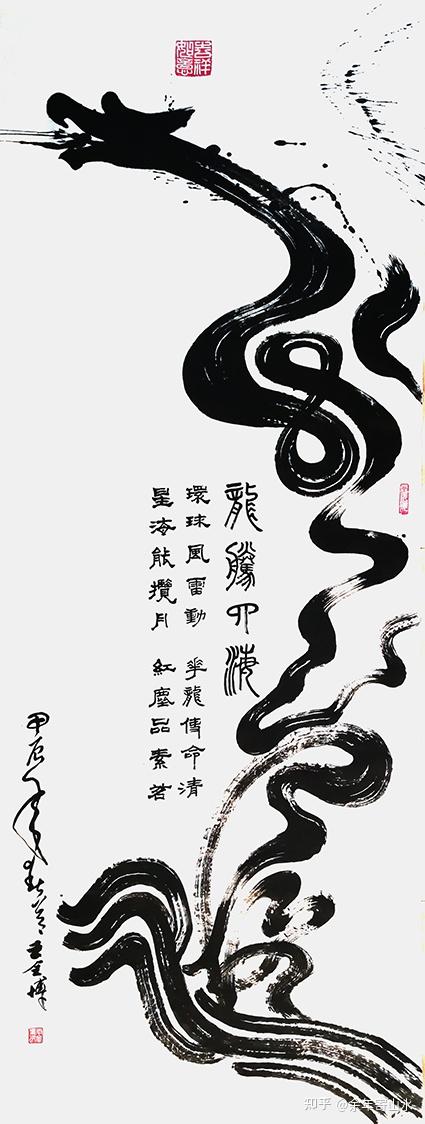 吉祥如意
龍騰四海
環球風雷動 華龍傳命清
星海能攬月 紅塵品素茗
甲辰年
知乎 @余年寄山水